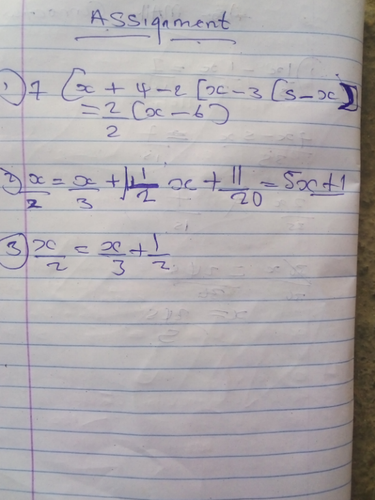 Assignment
1) 7 (x + 4 - 2 [x - 3 (5 - x)]
= 2/2 (x - 6)
2) x/2 = x/3 + 1/2 x + 11/20 = 5x + 1
3 x/2 = x/3 + 1/2